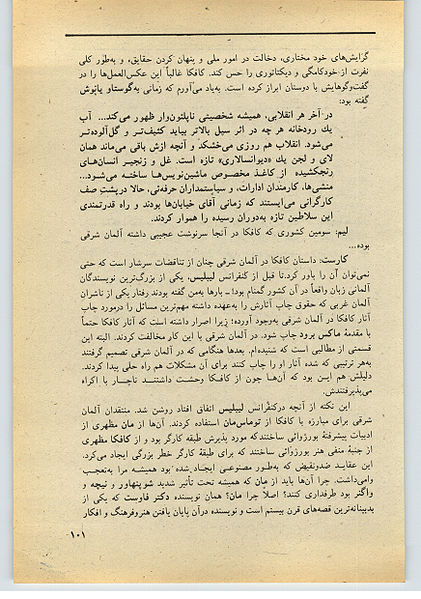 گرایش‌های خود مختاری، دخالت در امور ملی و پنهان کردن حقایق، و به‌طور کلی
نفرت از خودکامگی و دیکتاتوری را حس کند. کافکا غالباً این عکس‌العمل‌ها را در
گفت‌وگوهایش با دوستان ابراز کرده است. به‌یاد می‌آورم که زمانی به گوستاو یانوش
گفته بود:
در آخر هر انقلابی، همیشه شخصیتی ناپلئون‌وار ظهور می‌کند... آب
یك رودخانه هر چه در اثر سیل بالاتر بیاید کثیف‌تر و گل‌آلوده‌تر
می‌شود. انقلاب هم روزی می‌خشکد و آنچه ازش باقی می‌ماند همان
لای و لجن یك «دیوانسالاری» تازه است. غل و زنجیر انسان‌های
رنجکشیده از کاغذ مخصوص ماشین‌نویس‌ها ساخته می‌شود...
منشی‌ها، کارمندان ادارات، و سیاستمداران حرفه‌ئی، حالا در پشت صف
کارگرانی می‌ایستند که زمانی آقای خیابان‌ها بودند و راه قدرتمندی
این سلاطین تازه به‌دوران رسیده را هموار کردند.
لیم: سومین کشوری که کافکا در آنجا سرنوشت عجیبی داشته آلمان شرقی
بوده...
کارست: داستان کافکا در آلمان شرقی چنان از تناقضات سرشار است که حتی
نمی‌توان آن را باور کرد. تا قبل از کنفرانس لیبلیس، یکی از بزرگ‌ترین نویسندگان
آلمانی زبان واقعاً در آن کشور گمنام بود؛ ـ بارها به‌من گفته بودند رفتار یکی از ناشران
آلمان غربی که حقوق چاپ آثارش را به‌عهده داشته مهم‌ترین مسائل را درمورد چاپ
آثار کافکا در آلمان شرقی به‌وجود آورده؛ زیرا اصرار داشته است که آثار کافکا حتماً
با مقدمهٔ ماکس برود چاپ شود. در آلمان شرقی با این کار مخالفت کردند. البته این
قسمتی از مطالبی است که شنیده‌ام. بعدها هنگامی که در آلمان شرقی تصمیم گرفتند
به‌هر ترتیبی که شده آثار او را چاپ کنند برای آن مشکلات هم راه حلی پیدا کردند.
دلیلش هم این بود که آن‌ها چون از کافکا وحشت داشتند ناچار با اکراه
می‌پذیرفتندش.
این نکته از آنچه در کنفرانس لیبلیس اتفاق افتاد روشن شد. منتقدان آلمان
شرقی برای مبارزه با کافکا از توماس‌مان استفاده کردند. آن‌ها از مان مظهری از
ادبیات پیشرفتهٔ بورژوائی ساختند که مورد پذیرش طبقه کارگر بود و از کافکا مظهری
از جنبهٔ منفی هنر بورژوائی ساختند که برای طبقهٔ کارگر خطر بزرگی ایجاد می‌کرد.
این عقاید ضدونقیض که به‌طور مصنوعی ایجاد شده بود همیشه مرا به‌تعجب
وامی‌داشت. چرا آن‌ها باید از مان که همیشه تحت تأثیر شدید شوپنهاور و نیچه و
واگنر بود طرفداری کنند؟ اصلاً چرا مان؟ همان نویسنده دکتر فاوست که یکی از
بدبینانه‌ترین قصه‌های قرن بیستم است و نویسنده درآن پایان یافتن هنر و فرهنگ و افکار
۱۰۱